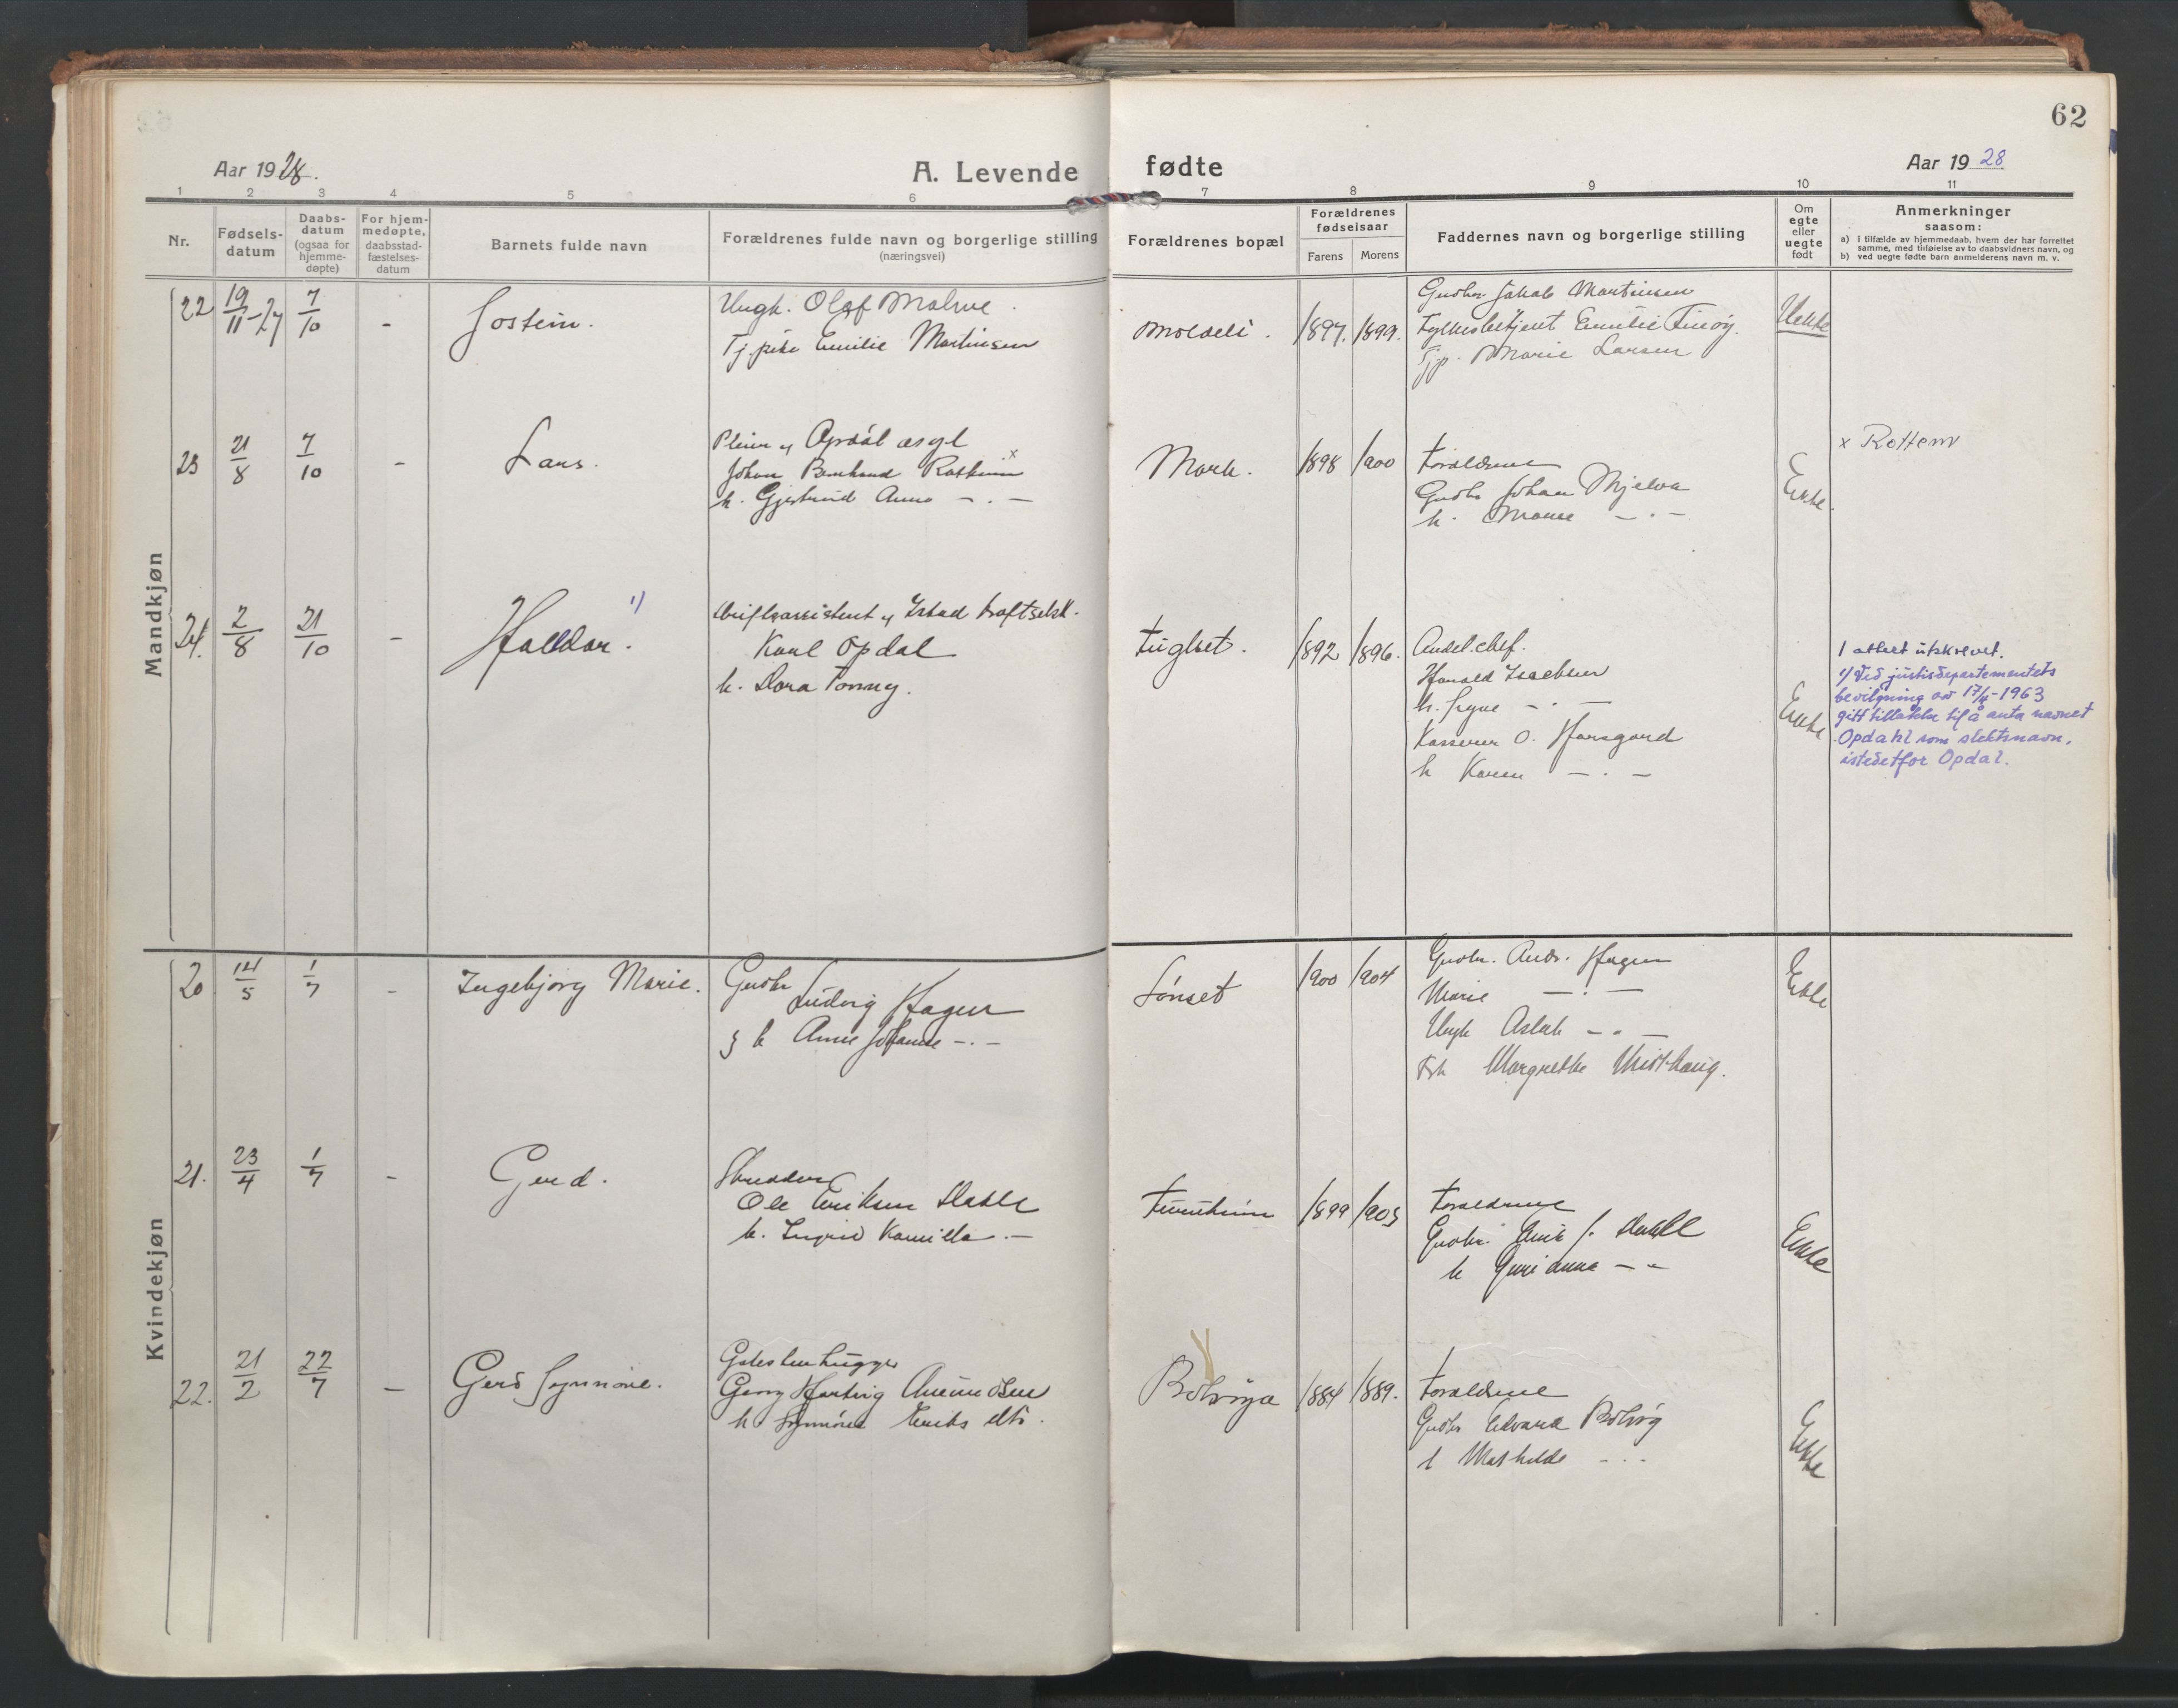 62
Aar 1928.
A. Levende fødte
Aar 1928
1 2 3 4 5 6 7 8 9 10 11
Nr.
Fødsels-
datum
Daabs-
datum
(ogsaa for
hjemme-
døpte)
For hjem-
medøpte,
daabsstad-
fæstelses-
datum
Barnets fulde navn
Forældrenes fulde navn og borgerlige stilling
(næringsvei)
Forældrenes bopæl
Forældrenes
fødselsaar
Farens Morens
Faddernes navn og borgerlige stilling
Om
egte
eller
uegte
født
Anmerkninger
saasom:
a) i tilfælde av hjemmedaab, hvem der har forrettet
samme, med tilføielse av to daabsvidners navn, og
b) ved uegte fødte barn anmelderens navn m. v.
Mandkjøn
22 19/11-27 7/10 - Jostein.
Ungk. Olaf Malme.
Tj.pike Emilie Martinsen
Moldeli. 1897. 1899.
Gudbr. Jakob Martinsen
Emilie
Tjp. Marie Larsen
Uekte
23 21/8 7/10 - Lars.
Pleier v Opdøl asyl
Johan Bernhard x
h. Gjertrud Anna -.-
Mork. 1898 1900
Foreldrene
Gudbr Johan Mjelva
h. -.-
Ekte.
x Rottem
24. 2/8 21/10 - Halldor. 1)
Driftsassistent v Istad kraftselsk.
Karl Opdal
h. Dora Tonning.
Fuglset. 1892 1896.
Harald Isachsen
h. Signe -.-
Kasserer O. Harsgard
h Karen -.-
Ekte
1 attest utskrevet.
1) Ved justisdepartementets
bevilgning av 17/4-1963
gitt tillatelse til å anta navnet
Opdahl som slektsnavn,
istedetfor Opdal.
Kvindekjøn
20 14/5 1/7 - Ingebjørg Marie.
Gudbr
Ludvig Hagen
h Anne Johanne -.-
Lønset 1900 1904
Gudbr. Andr. Hagen
Marie -.-
Ungk Aslak -.-
Margrethe
Ekte
21. 23/4 1/7 - Gerd.
Skredder
Ole Eriksen Dahle
h. Ingrid Kamilla -.-
1899 1903
Foreldrene
Gudbr. Dahle
h Gurianna -.-
Ekte
22. 21/2 22/7 - Gerd Synnøve.
Gatestenhugger
Georg Hartvig
h Synnøve Eriks dtr.
Bolsøya 1884 1889.
Foreldrene
Gudbr Edvard Bolsøy
h Mathilde -.-
Ekte